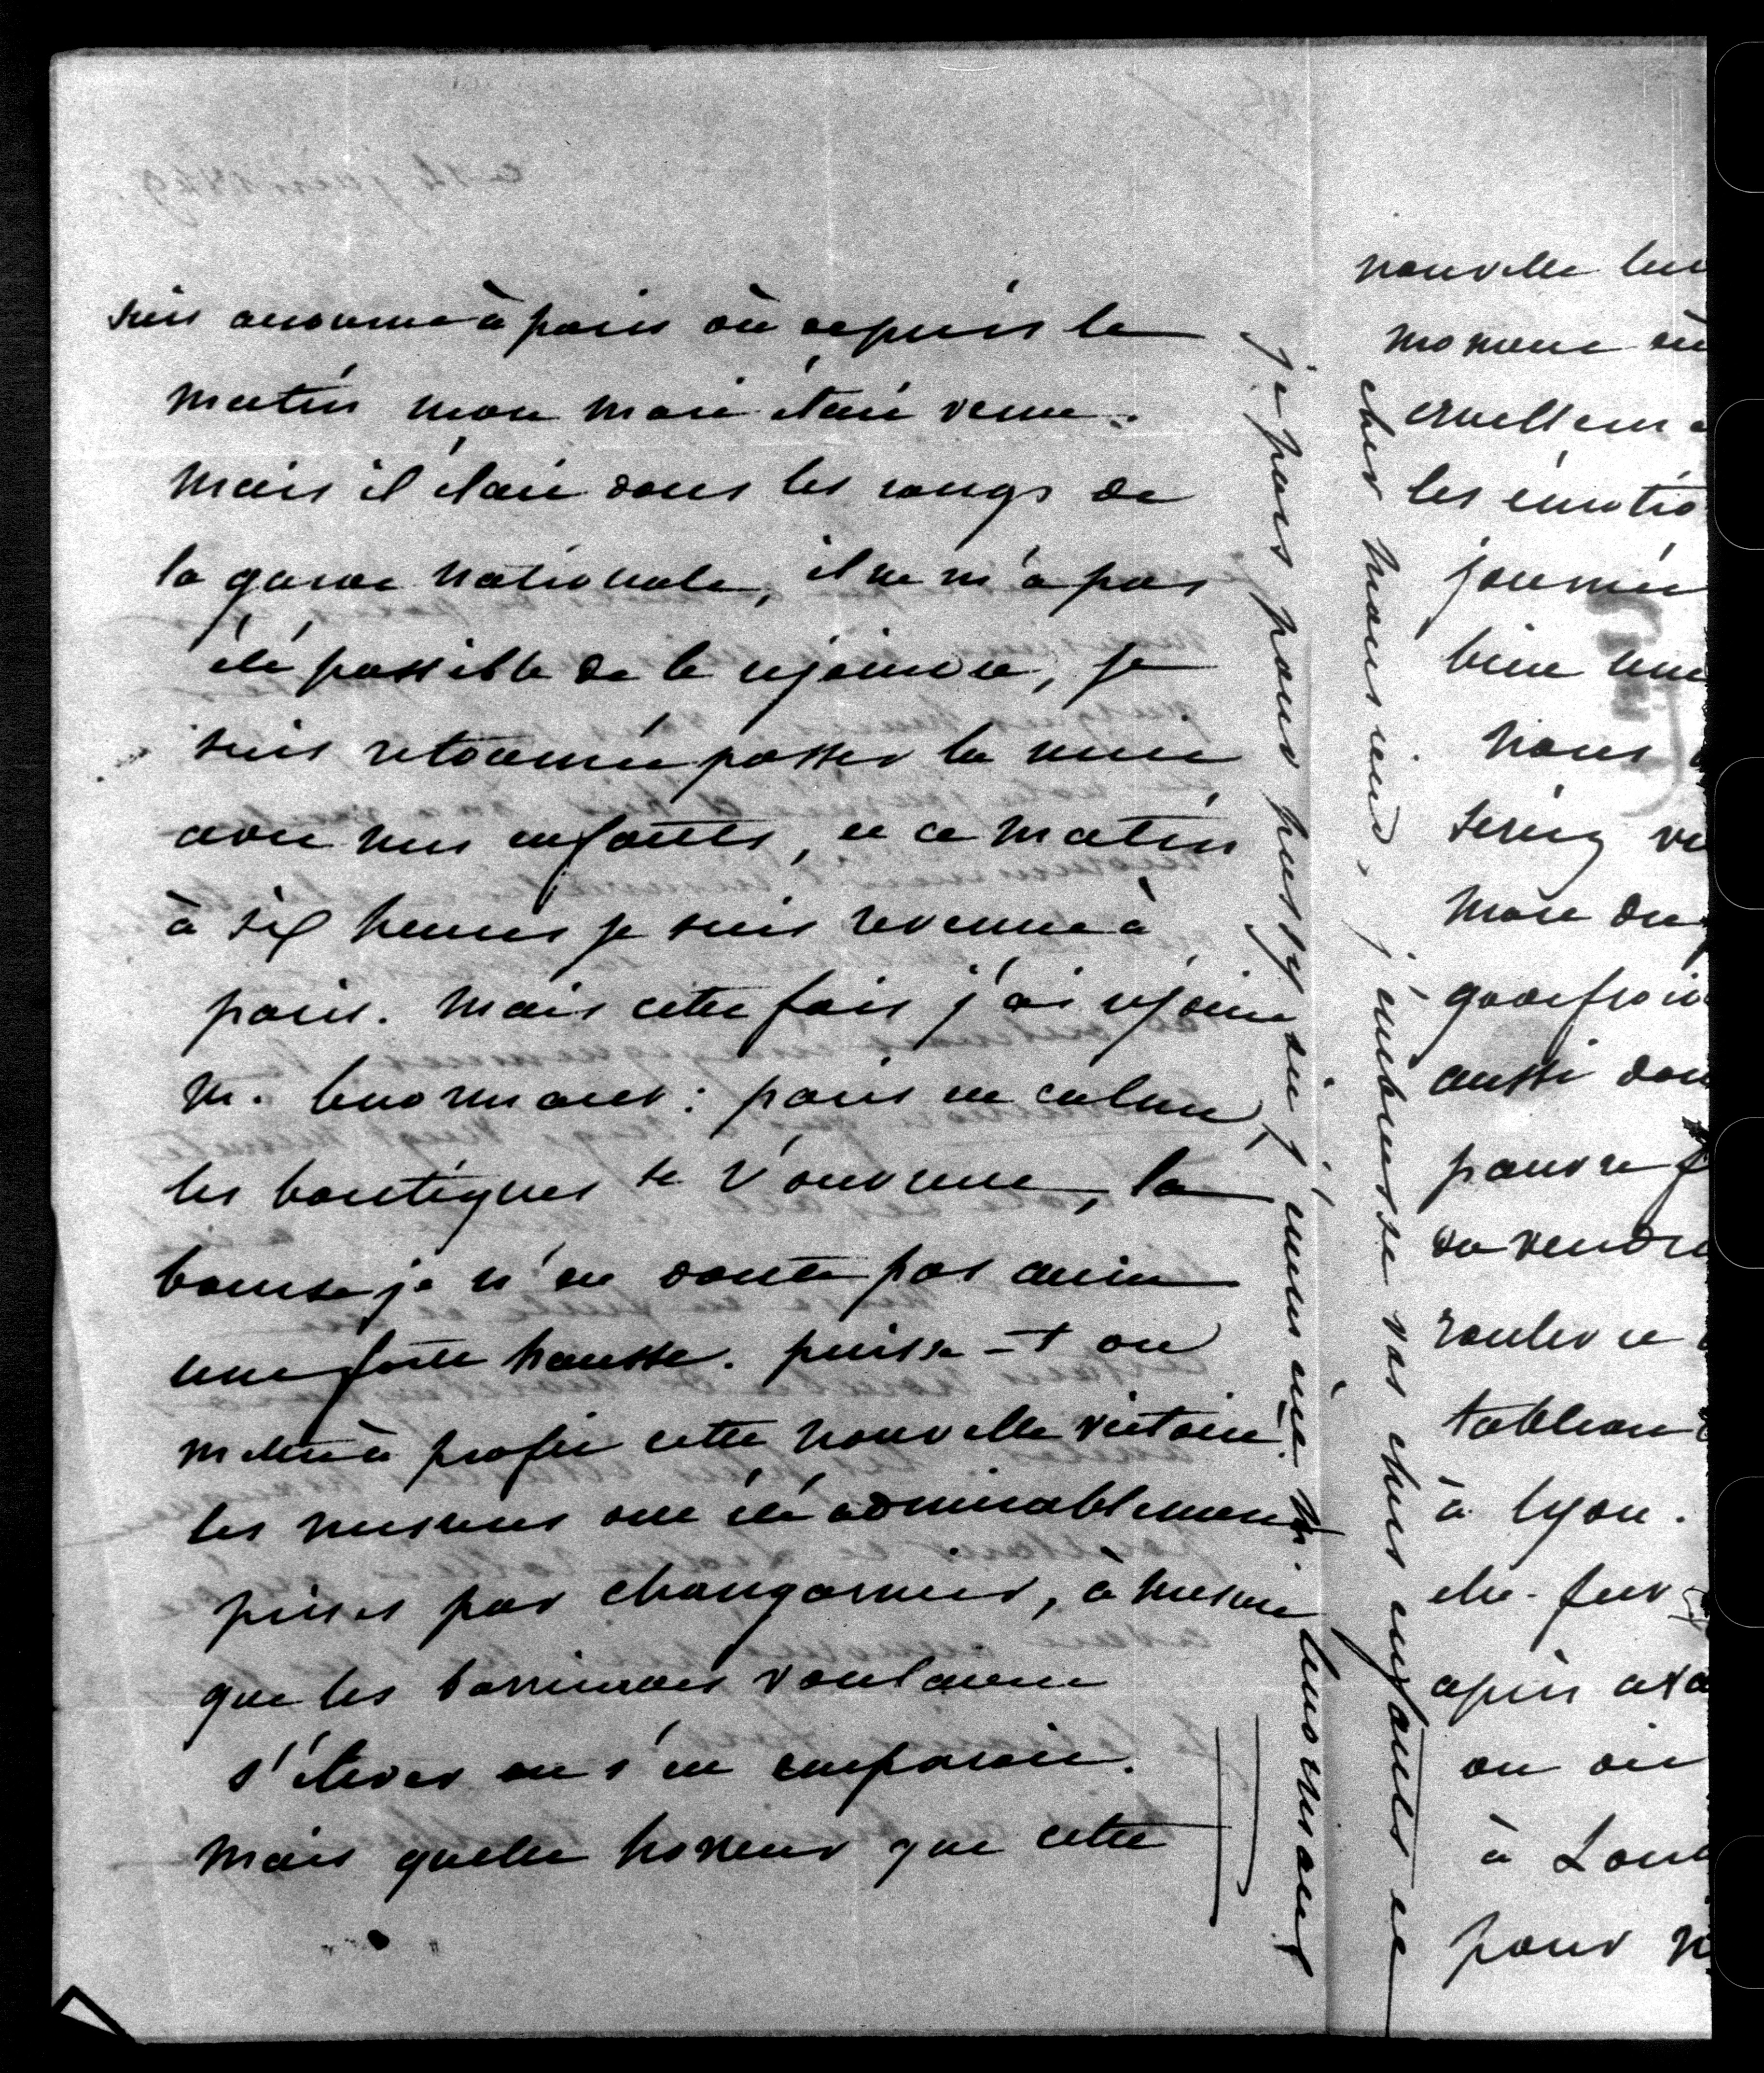 suis accourue à paris où depuis le
matin mon mari était venu.
mais il était dans les rangs de
la garde nationale, il ne m'a pas
été possible de le rejoindre, je
suis retournée passer la nuit
avec mes enfants, et ce matin
à six heures je suis revenue à
paris. mais cette fois j'ai rejoint
m. lenormant : paris est calme,
les boutiques se r'ouvrent, la
bourse je n'en doute pas aura
une forte hausse. puisse-t on
mettre à profit cette nouvelle victoire.
les mesures ont été admirablement
prises par changarnier, à mesure
que les barricades voulaient
s'élever on s'en emparait.
mais quelle horreur que cette
je pars pour passy où j'emmène m. lenormant
cher monsieur, j'embrasse vos chers enfants et
nouvelle
moment où
cruellem
les émotio
journée
bien
nous
seriez
mort du
aussi
pauvre
tableau
à lyon.
après
on
à Lou
pour